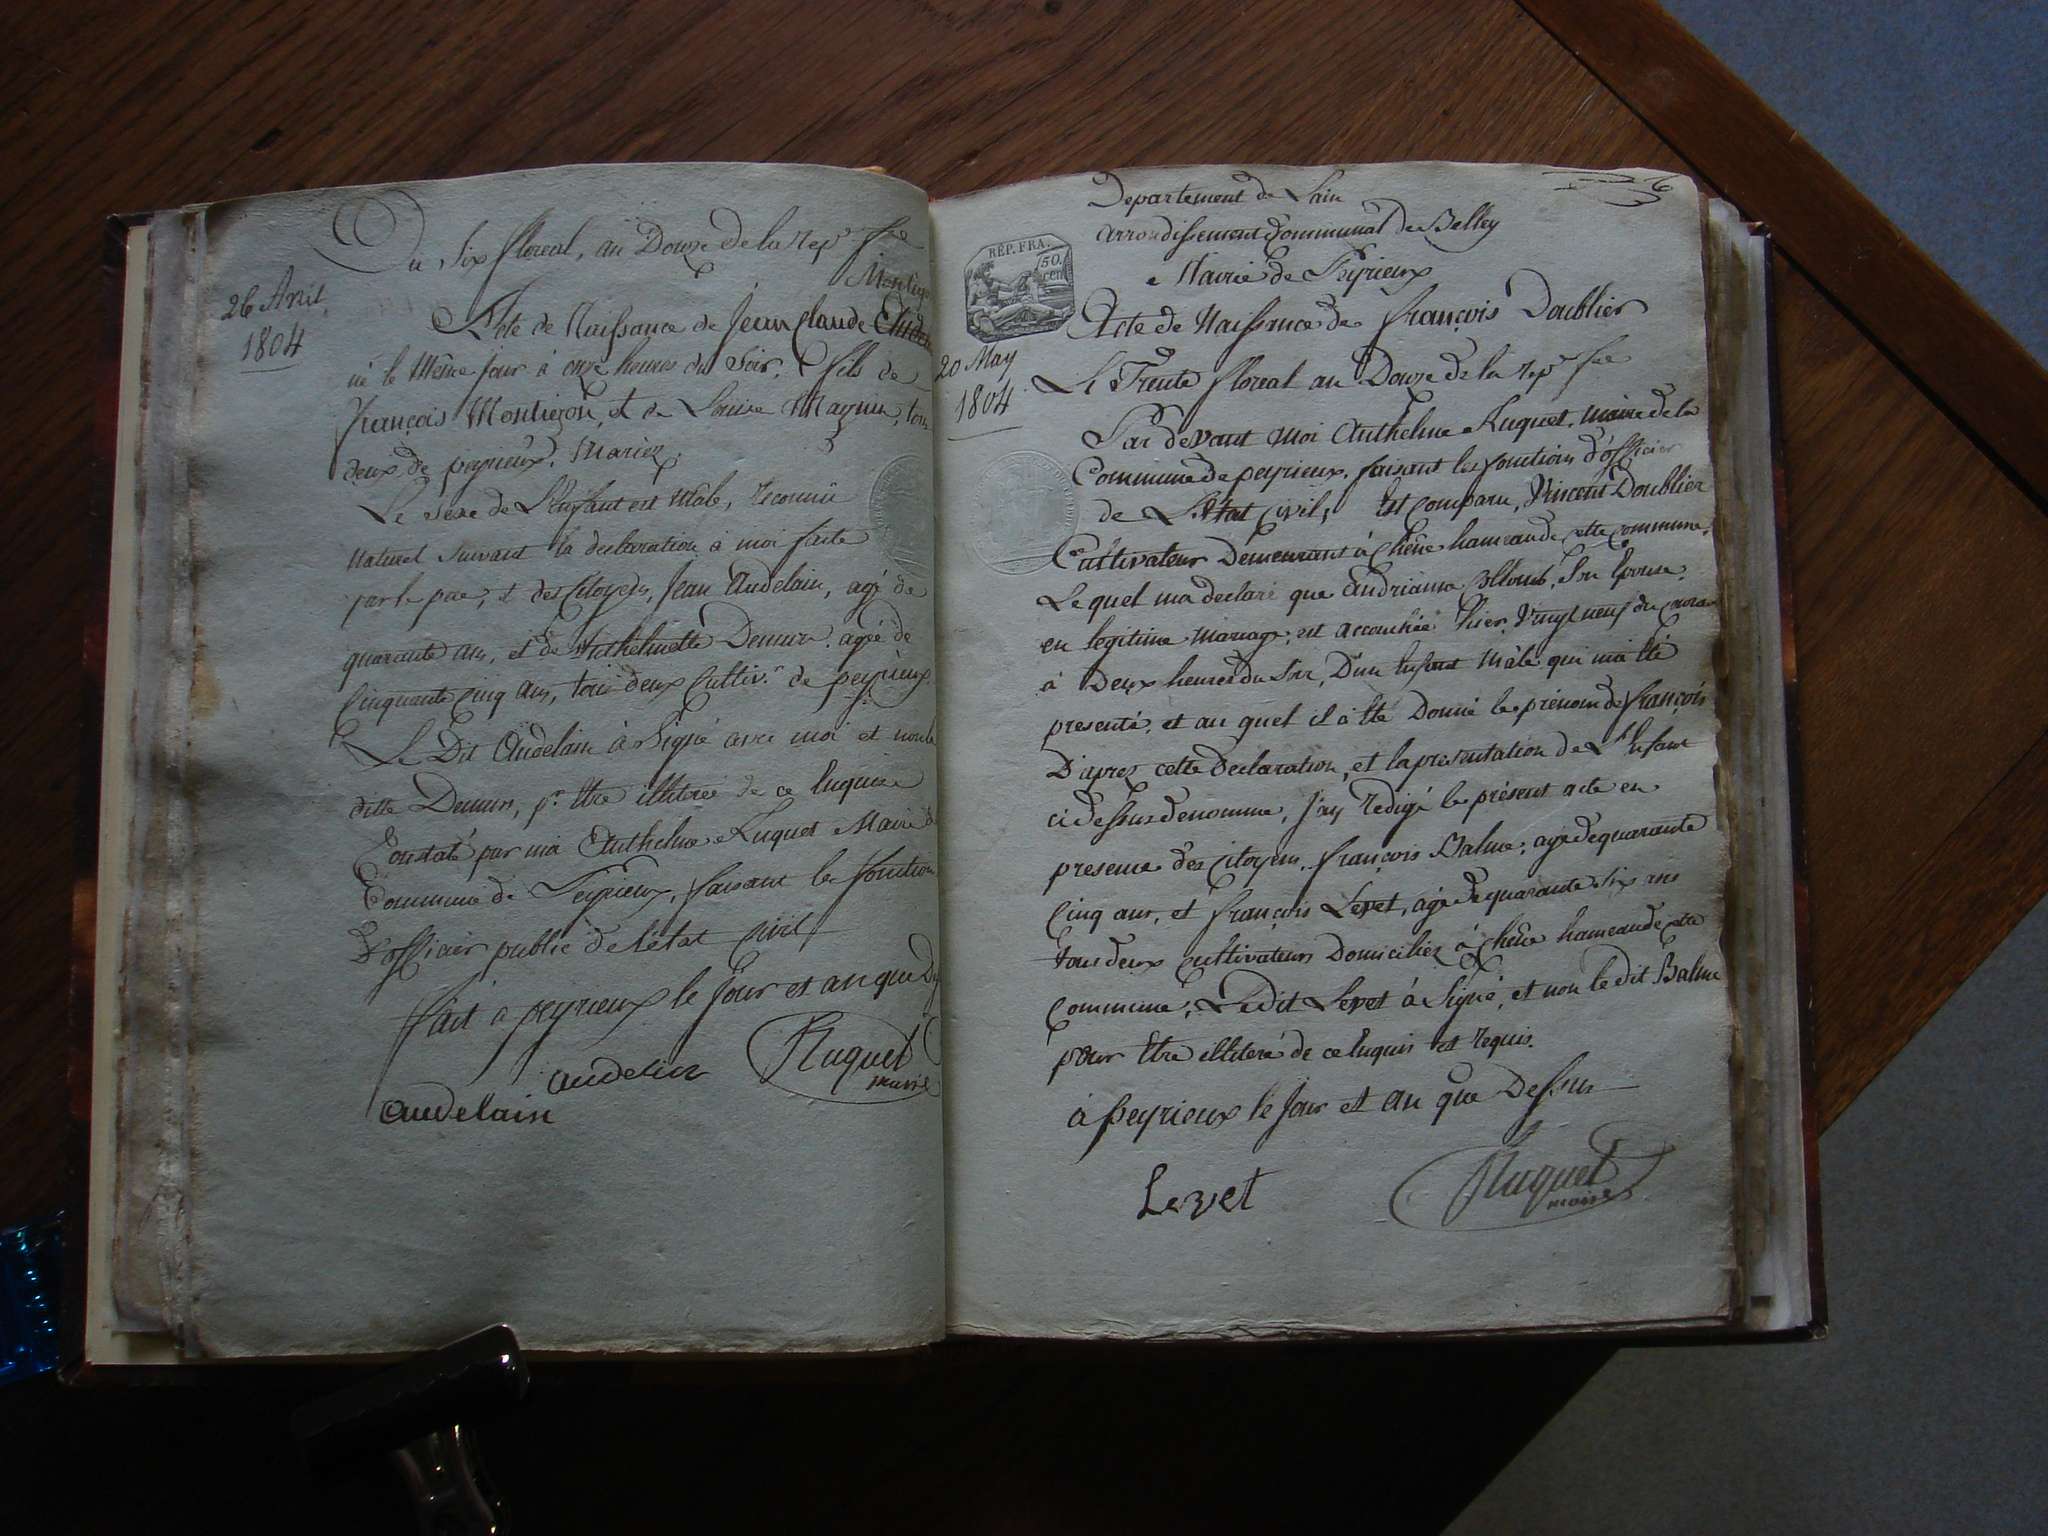 Du Six floreal, an Douze de la rep.e fse
26 Avril
1804
Acte de Naissance de Jean Claude
né le même jour à onze heures du Soir, fils de
françois Montiezon, et de Louise Magnin, tous
deux de peyrieux. Mariez.
Le Sexe de L'enfant est mâle, reconnû
Naturel Suivant la declaration a moi faite
par le pere, et des Citoyens, Jean Audelain, agé de
quarante ans, et de Anthelmette Demurs agée de
Cinquante cinq ans, tous deux Cultiv.rs de peyrieux.
Le Dit Audelain à Signé avec moi et non la
ditte Demurs, p.r être illiterée de ce Enquise
Constaté par moi Anthelme Ruquet Maire de
Commune de Peyrieux, faisant les fonctions
D'officier public de l'état civil
fait a peyrieux le Jour et an que D
audelin Ruquet
maire
audelain
6
Departement de Lain
Arrondissement Communal de Belley
Mairie de Peyrieux
RÉP. FRA.
50.
cen
Acte de Naissance de françois Doublier
20 May
1804
Le Trente floreal an Douze de la rep.e fse
Par devant moi Anthelme Ruquet, maire de la
Commune de peyrieux, faisant les fonctions d'officier
de L'Etat civil, Est comparu, Vincent Doublier
Cultivateur Demeurant à Chêne hameau de cette commune.
Le quel m'a declaré que Andrianne Son Epouse.
en legitime mariage, est accouchée hier Vingt neuf du courant
à Deux heures du Soir, D'un Enfant Mâle qui m'a été
presenté, et au quel il à été Donné le prénom de françois
D'apres cette Declaration, et la presentation de L'Enfant
ci dessus denommé, J'ay redigé le présent acte en
presence des Citoyens, françois Balme, agé de quarante
Cinq ans, et françois Levet, agé de quarante Six ans
tous deux cultivateurs Domiciliez à Chêne hameau de cette
Commune, Ledit Levet à Signé, et non le dit Balme
pour être illiteré de ce enquis et requis.
à peyrieux le Jour et an que Dessus
Levet Ruquet
maire